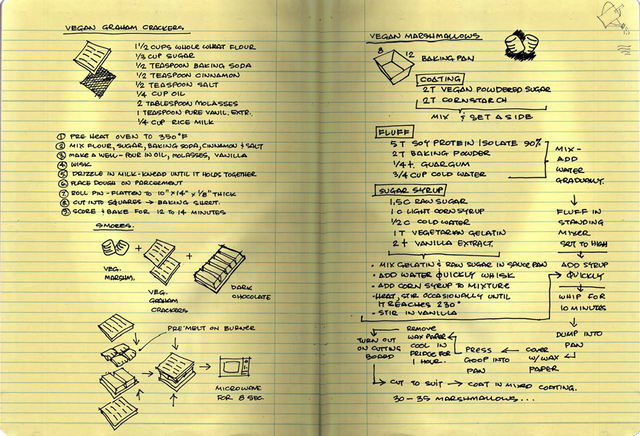 VEGAN GRAHAM CRACKERS
1 1/2 CUPS WHOLE WHAT FLOUR
1/3 CUP SUGAR
1/2 TEASPOON BAKING SODA
1/2 TEASPOON CINNAMON
1/2 TEASPOON SALT
1/4 CUP OIL
2 TABLESPOON MOLASSES
1 TEASPOON PURE VANIL. EXTR.
1/4 CUP RICE MILK
1 PRE HEAT OVEN TO 350°F
2 MIX FLOUR, SUGAR, BAKING SODA, CINNAMON & SALT
3 MAKE A WELL - POUR IN OIL, MOLASSES, VANILLA
4 WISK
5 DRIZZLE IN MILK - KNEAD UNTIL IT HOLDS TOGETHER
6 PLACE DOUGH ON PARCEMENT
7 ROLL PIN - FLATTEN TO 10" x 14" x 1/8" THICK
8 CUT INTO SQUARES → BAKING SHEET.
9 SCORE & BAKE FOR 12 TO 14 MINUTES
SMORES.
VEG. MARSHM.
VEG. GRAHAM CRACKERS
DARK CHOCOLATE
PRE'MELT ON BURNER
MICROWAVE FOR 8 SEC.
VEGAN MARSHMALLOWS
8 12 BAKING PAN
COATING
2T VEGAN POWDERED SUGAR
2T CORNSTARCH
MIX & SET ASIDE
FLUFF
5 T SOY PROTEIN ISOLATE 90%
2T BAKING POWDER
1/4 t. GUARGUM
3/4 CUP COLD WATER
MIX -
ADD
WATER
GRADUALLY.
FLUFF IN
STANDING
MIXER
SET TO HIGH
SUGAR SYRUP
1.5C RAW SUGAR
1 C LIGHT CORN SYRUP
1/2 C COLD WATER
1 T VEGETARIAN GELATIN
2 t VANILLA EXTRACT.
• MIX GELATIN & RAW SUGAR IN SAUCE PAN
• ADD WATER QUICKLY WHISK
• ADD CORN SYRUP TO MIXTURE
• HEAT, STIR OCCASIONALLY UNTIL
IT REACHES 230°
- STIR IN VANILLA
ADD SYRUP
→ QUICKLY
WHIP FOR
10 MINUTES
DUMP INTO
PAN
COVER
W/ WAX
PAPER
PRESS
GOOP INTO
PAN
REMOVE
WAX PAPER
COOL IN
FRIDGE FOR
1 HOUR.
TURN OUT
ON CUTTING
BOARD
→ CUT TO SUIT → COAT IN MIXED COATING.
30 - 35 MARSHMALLOWS...